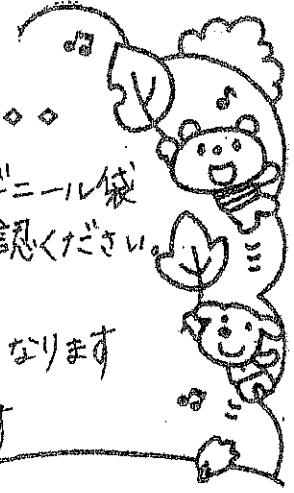 ビニール袋
認ください。
なります
す